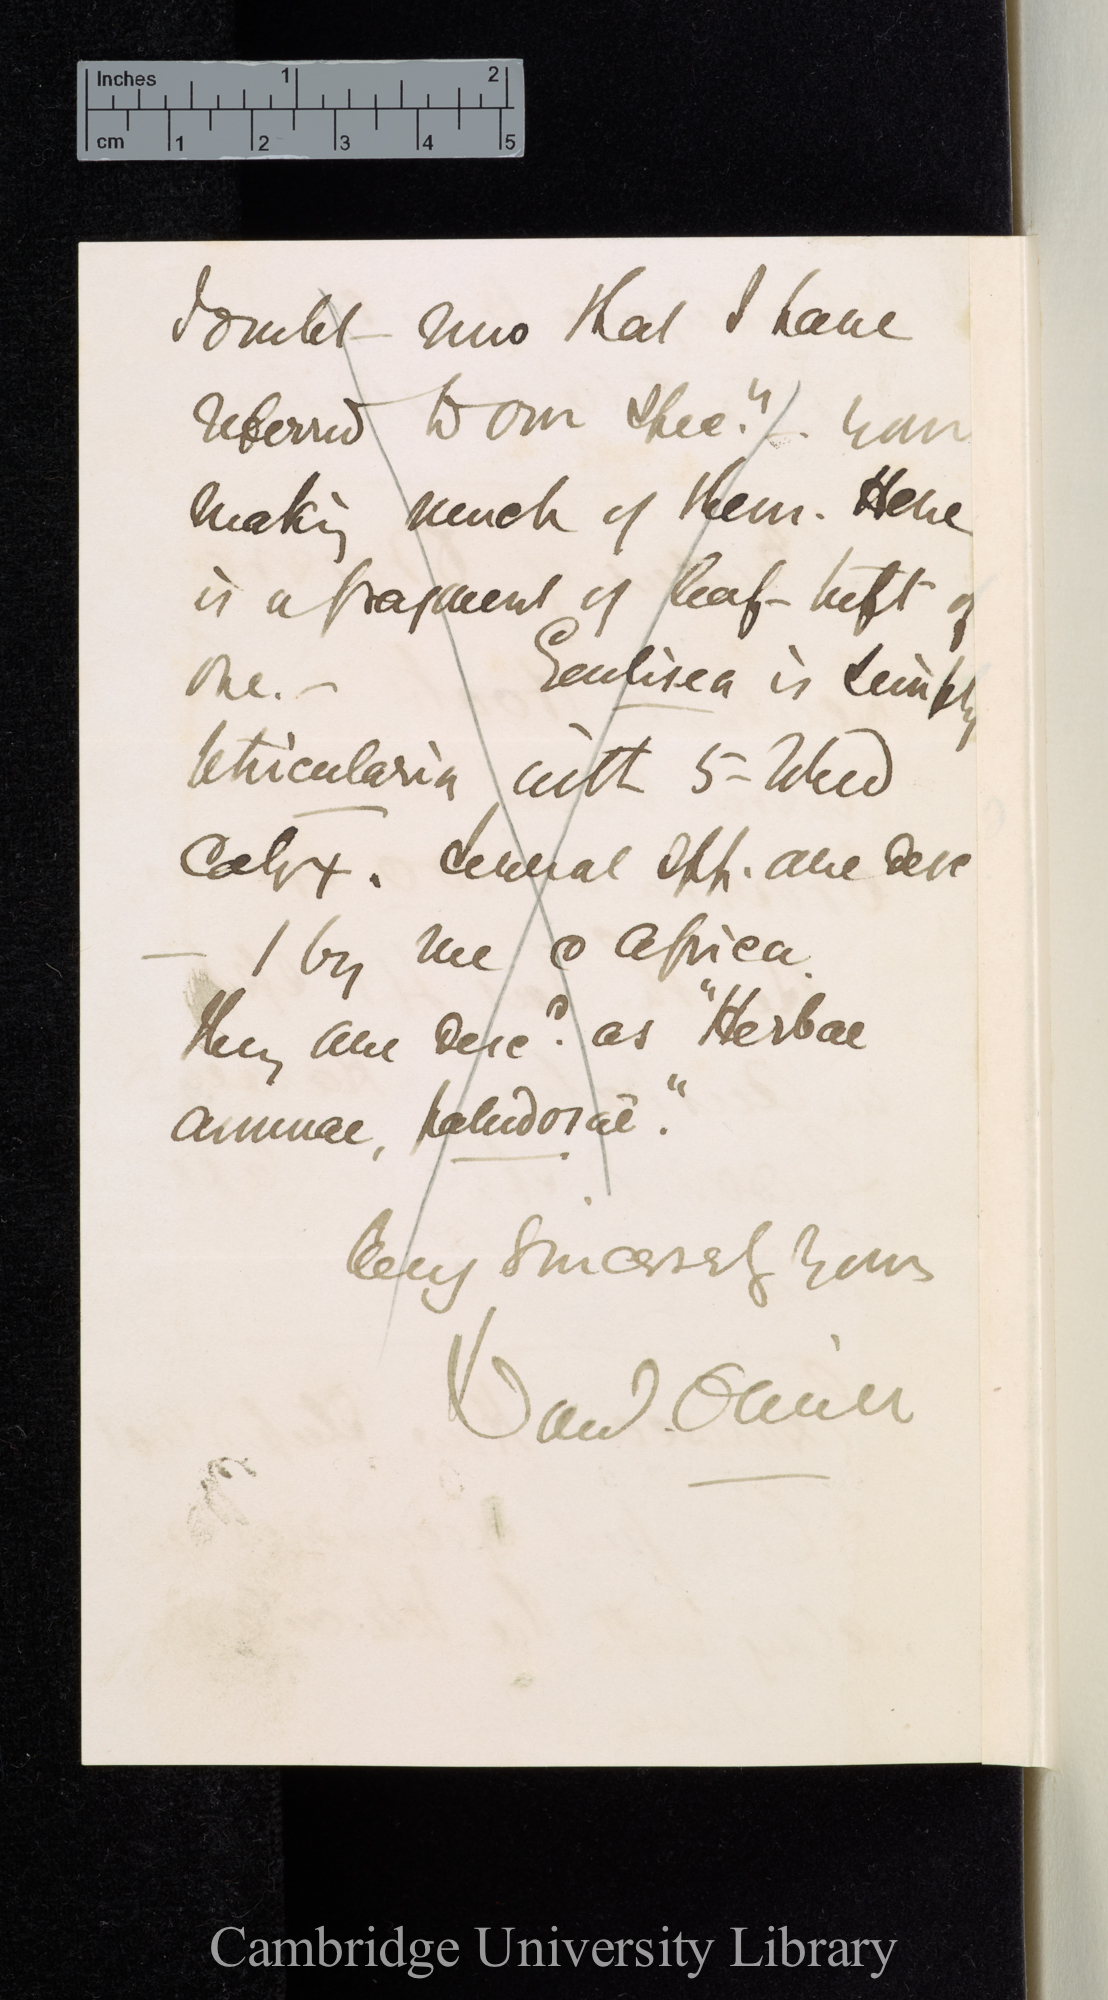 Inches 1 2
cm 1 2 3 4 5
doubt now that I have
referred to our spec.ⁿ/—. your
making much of them. Here
is a fragment of leaf-tuft of
one.— Genlisea is simply
Utricularia with 5-lobed
Calyx. Several spp. are desc
— 1 by me o Africa.
They are desc.ᵈ as "Herbae
annuae, paludosae."
Very Sincerely Yours
Dan.ˡ Oliver
Cambridge University Library